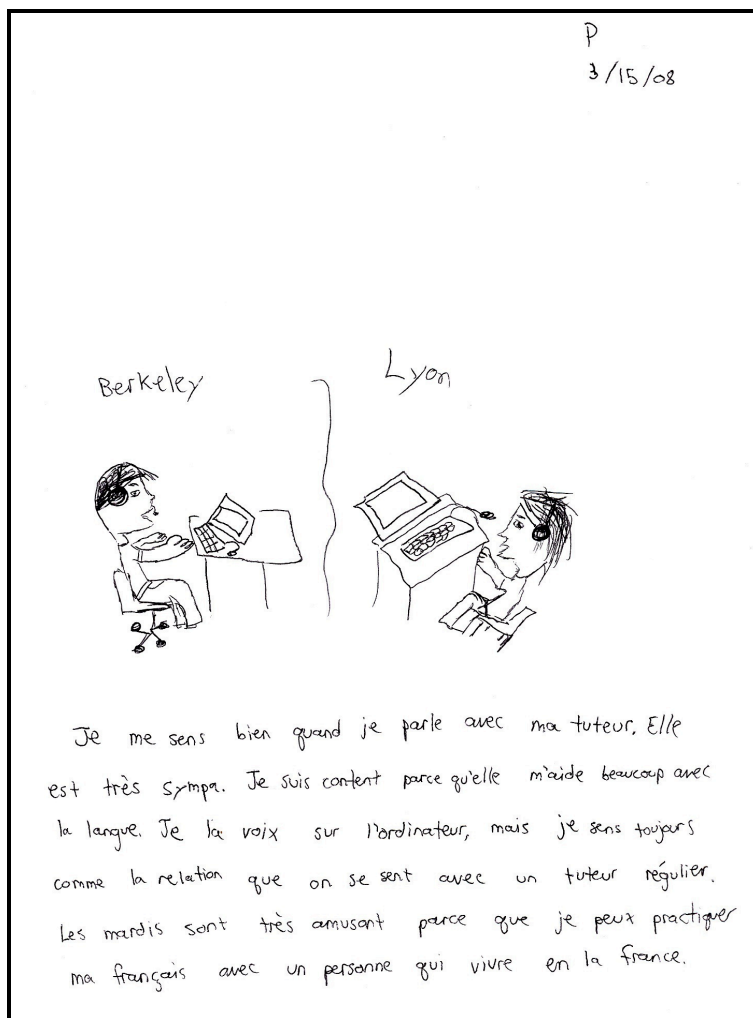 P
3/15/08
Berkeley
Lyon
Je me sens bien quand je parle avec ma tuteur. Elle
est très sympa. Je suis content parce qu'elle m'aide beaucoup avec
la langue. Je la voix sur l'ordinateur, mais je sens toujours
comme la relation que on se sent avec un tuteur régulier.
Les mardis sont très amusant parce que je peux practiquer
ma français avec un personne qui vivre en la france.